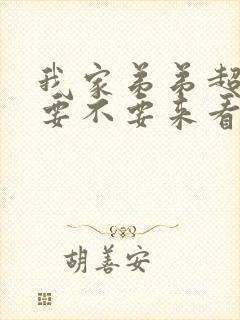 我家弟弟超
要不要来看
胡善安